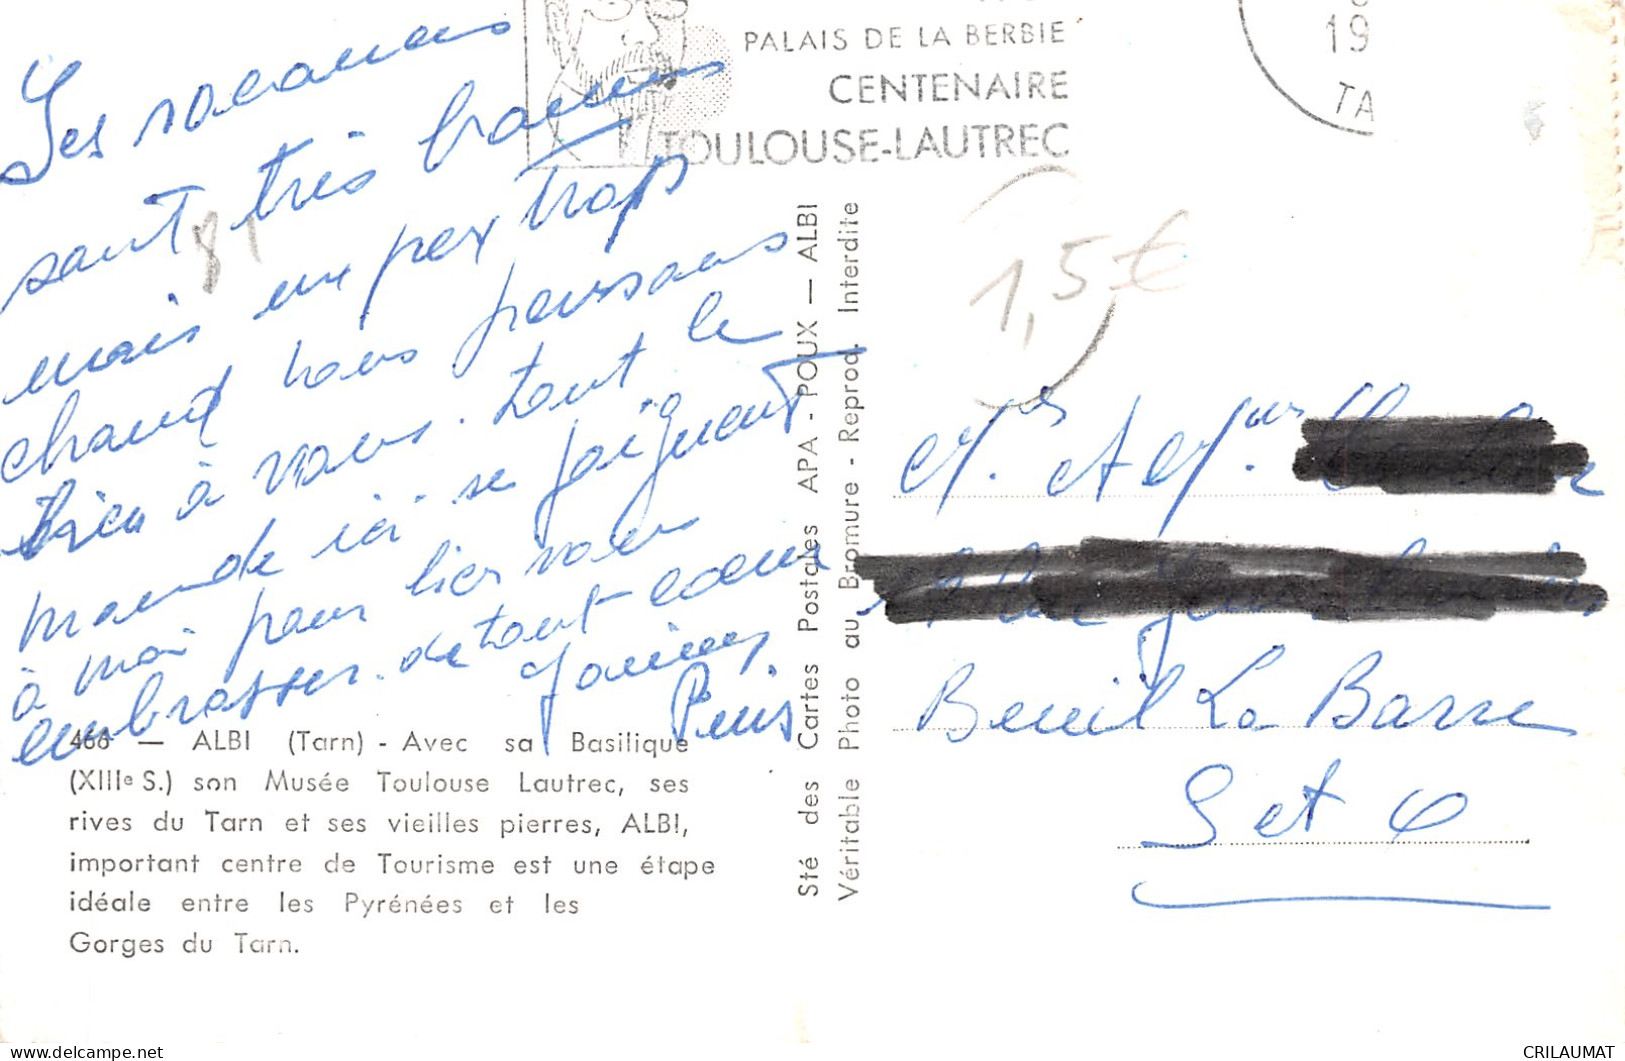 Les vacances
sont très bonnes
mais un peu trops
chaud nous pensons
bien à vous. tout le
monde ici se joignent
à moi pour bien vous
embrasser. de tout coeur
PALAIS DE LA BERBIE
CENTENAIRE
TOULOUSE-LAUTREC
19
TA
81
1,5€
466 — ALBI (Tarn) - Avec sa Basilique
(XIIIe S.) son Musée Toulouse Lautrec, ses
rives du Tarn et ses vieilles pierres, ALBI,
important centre de Tourisme est une étape
idéale entre les Pyrénées et les
Gorges du Tarn.
Sté des Cartes Postales APA - POUX — ALBI
Véritable Photo au Bromure - Reprod. Interdite
Mr. et Mme.
Beuil La Barre
S et O
CRILAUMAT